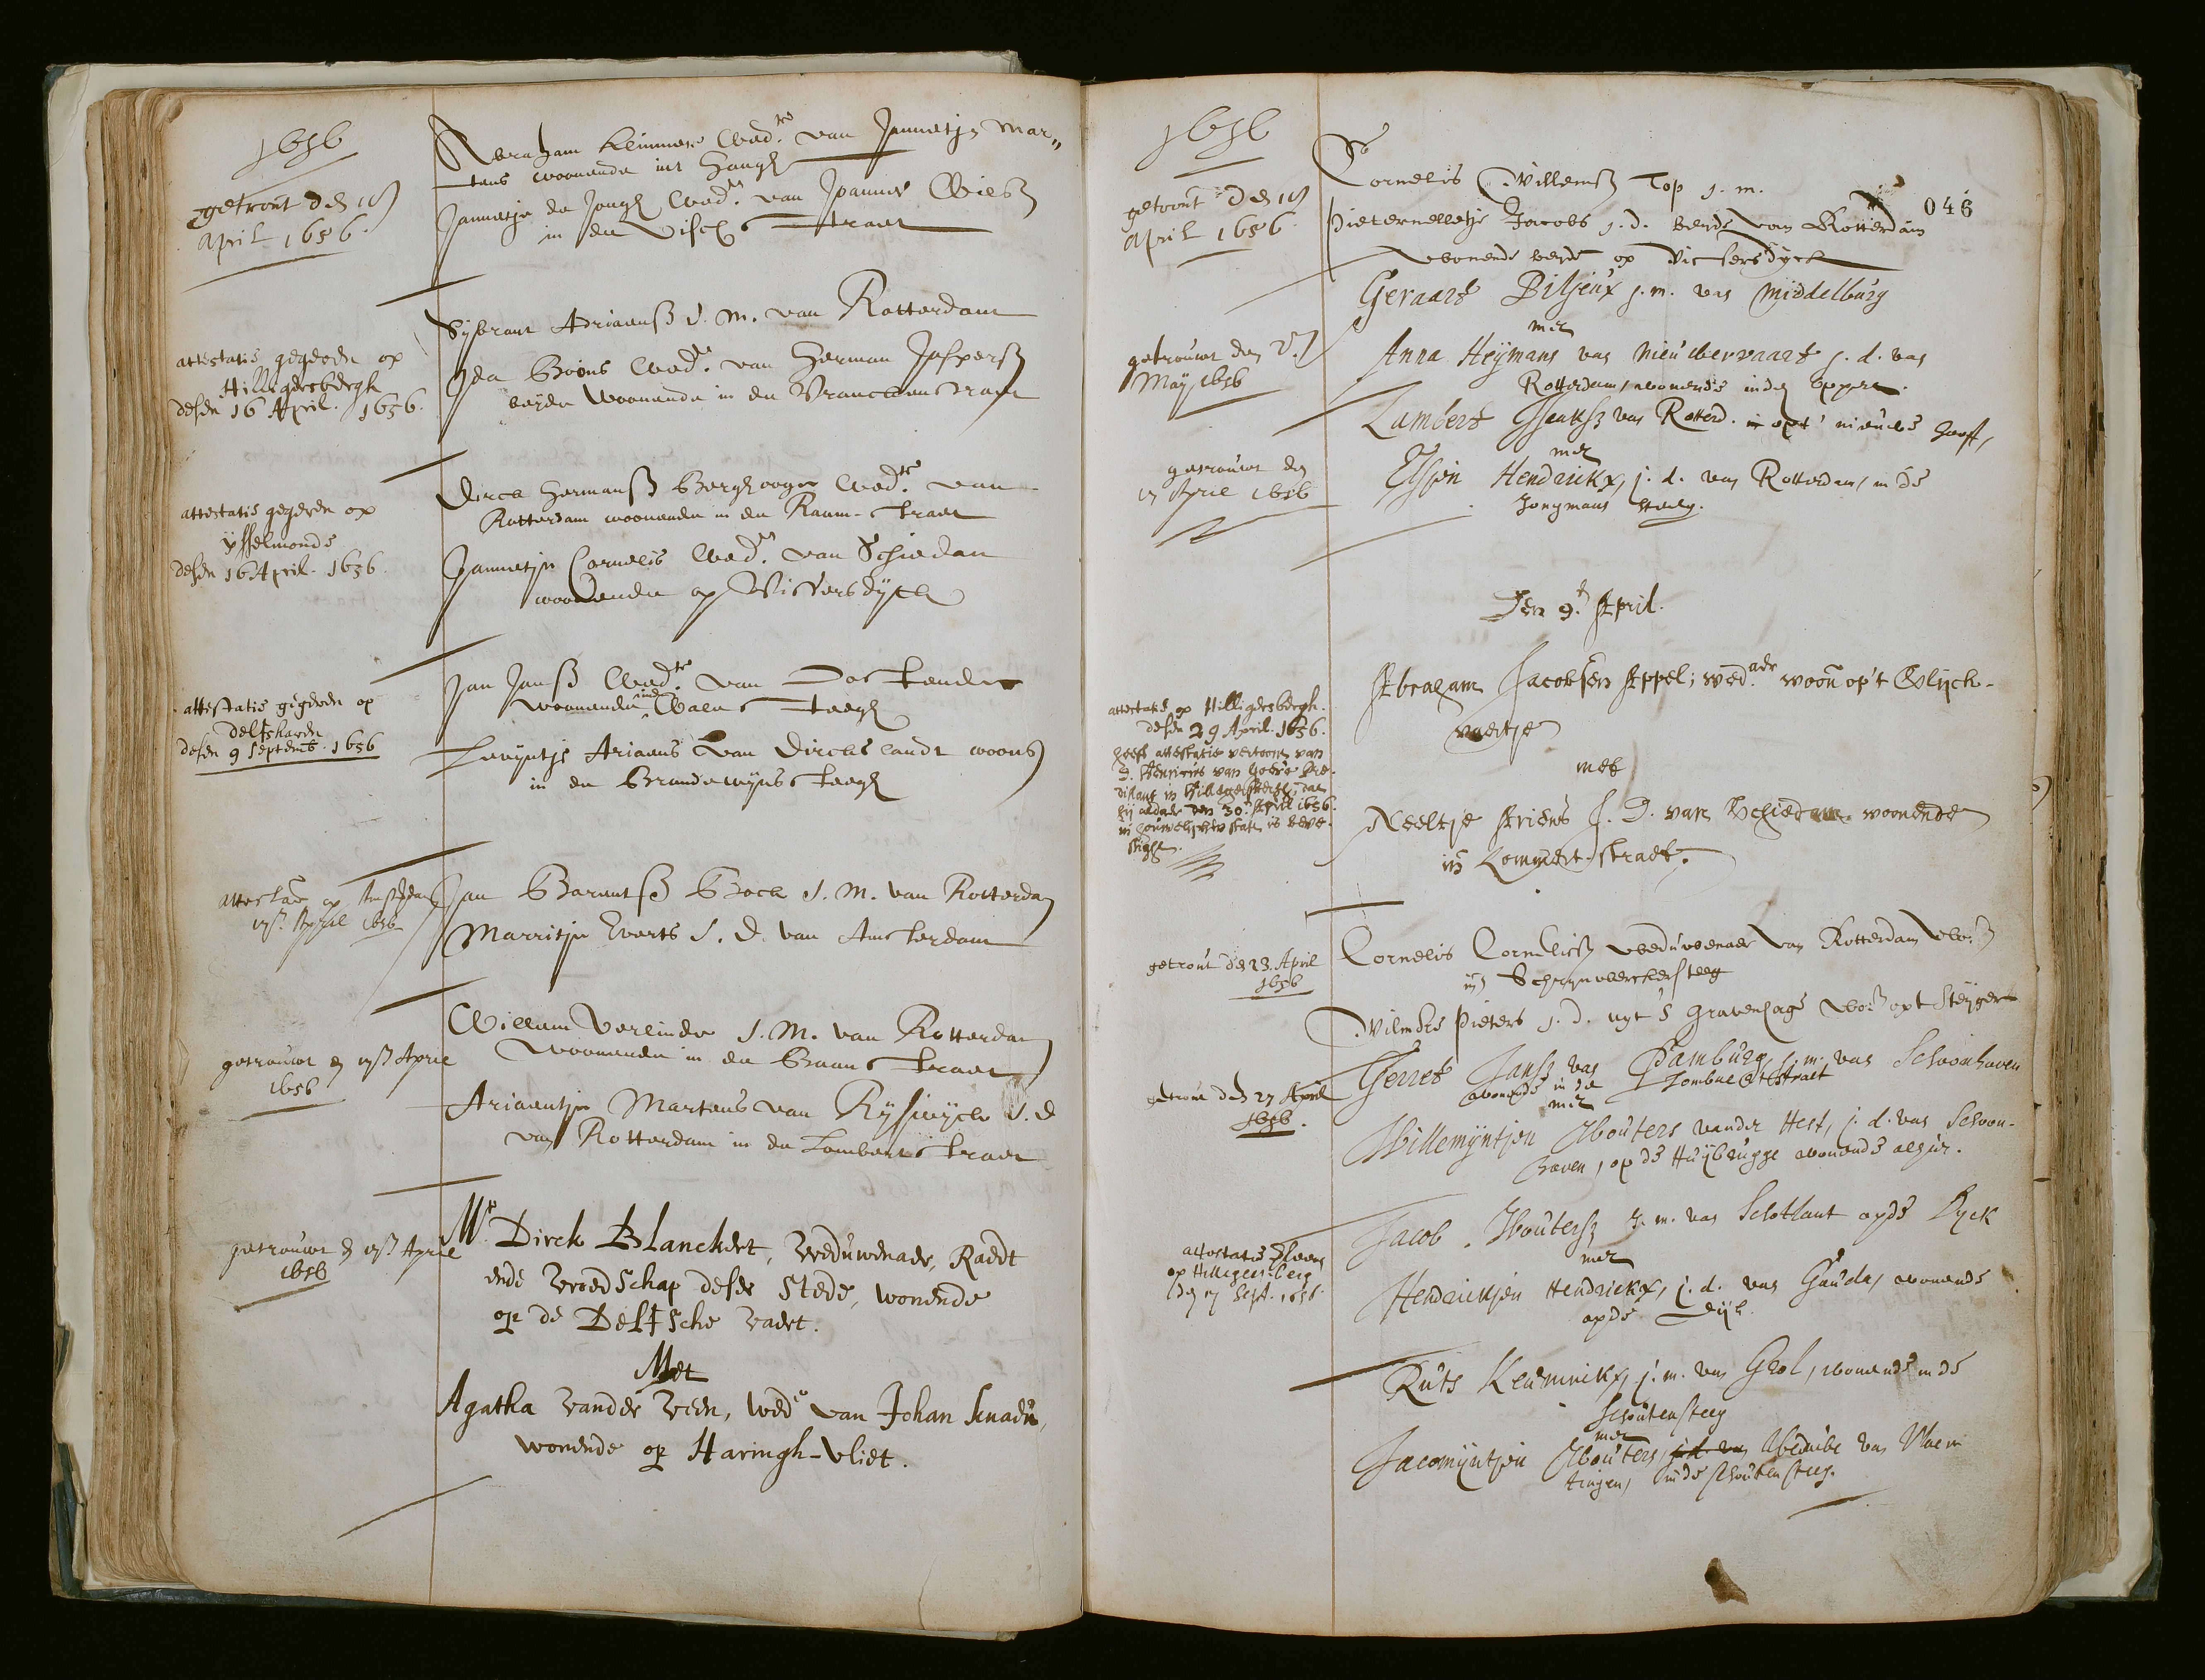 1656
getrout den 18
April 1656.
Abraham Kemmere Wed.re van Jannetje Mar„
tens woonende int Hangh
Jannetje de Jongh Wed.e van Joannes Wiels
in de Visch straet
attestatie gegeven op
Hilligersbergh
desen 16 April. 1656.
Sijbrant Adriaensz J. M. van Rotterdam
Ida Boons Wed.e van Herman Jaspersz
beijde woonende in de Vranckenstraet
attestatie gegeven op
ijsselmonde
desen 16 April. 1656
Dirck Hermansz Berghooge Wed.re van
Rotterdam woonende in de Raam-straet
Jannetje Cornelis Wed.e van Schiedam
woonende op Vissersdijck
attestatie gegeven op
delfshaven
desen 9 Septemb. 1656
Jan Jansz Wed.re van
woonende inde Baen steegh
Levijntje Ariaens van Dircksland woont
in de Brandewijns steegh
attestatie op Amsterdam
17 April 1656
Jan Barentsz Bock J. M. van Rotterdam
Marritje Everts J. D. van Amsterdam
getrouwt den 17 April
1656
Willem Verlinde J. M. van Rotterdam
woonende in de Baanstraet
Ariaentje Martens van Rijswijck J. d
van Rotterdam in de Lombertstraet
getrouwt den 17 April
1656
Mr. Dirck Blanckert, Weduwenaer, Raedt
ende Vroedschap deser Stede, wonende
op de Delftsche vaert.
Met
Agatha vander Veen, wede van Johan
wonende op Haringh-vliet.
1656
046
getrout den 18
April 1656.
Cornelis Willemsz Top j. m.
Pieternelletje Jacobs j. d. beyde van Rotterdam
wonende beyde op Vissersdyck
getrouwt den 2.
Maij 1656
Geraart Biljeux j. m. van Middelburg
met
Anna Heijmans van Nieuwervaart j. d. van
Rotterdam, wonende inden oppert.
getrouwt den
17 April 1656
Lambert Isaaksz van Rotterd. op't nieuwe hooft,
met
Elsjen Hendrickx, j. d. van Rotterdam, in de
Jongmans steeg.
Den 9.e April.
attestatie op Hilligersbergh.
desen 29 April. 1656.
heeft attestatie vertoont van
D. Henricus van Pre-
dikant in Hillegersbergh, dat
hij aldaer den 30. April 1656.
in houwelijcken staet is beve-
stight.
Abraham Jacobsen Appel, wed.aer woon op't Slijck-
vaertje
met
Neeltje Ariens J. D. van Schiedam woonende
in Lommert-straet.
getrout den 23. April
1656
Cornelis Cornelisz weduwenaer van Rotterdam
in Schrijnwerckersteeg
Wilmke Pieters j. d. uyt s Gravenhage op't Steyger
getrout den 27 April
1656.
Gerret Jansz van Hamburg, j. m. van Schoonhoven
wonende in de Lombaertstraet
met
Willemijntjen Wouters vander Hest, j. d. van Schoon-
hoven, op de Huijbrugge wonende alhier.
attestatie gegeven
op Hillegersberg
den 17 Sept. 1656.
Jacob Woutersz j. m. van Schotlant op de Dyck
met
Hendrickjen Hendrickx, j. d. van Gouda, wonende
op de Dijk.
Ruts j. m. van Grol, wonende in de
Schoutensteeg
met
Jacomijntjen Wouters, j. d. van Weduwe van Vlaer-
dingen, in de Schoutensteeg.